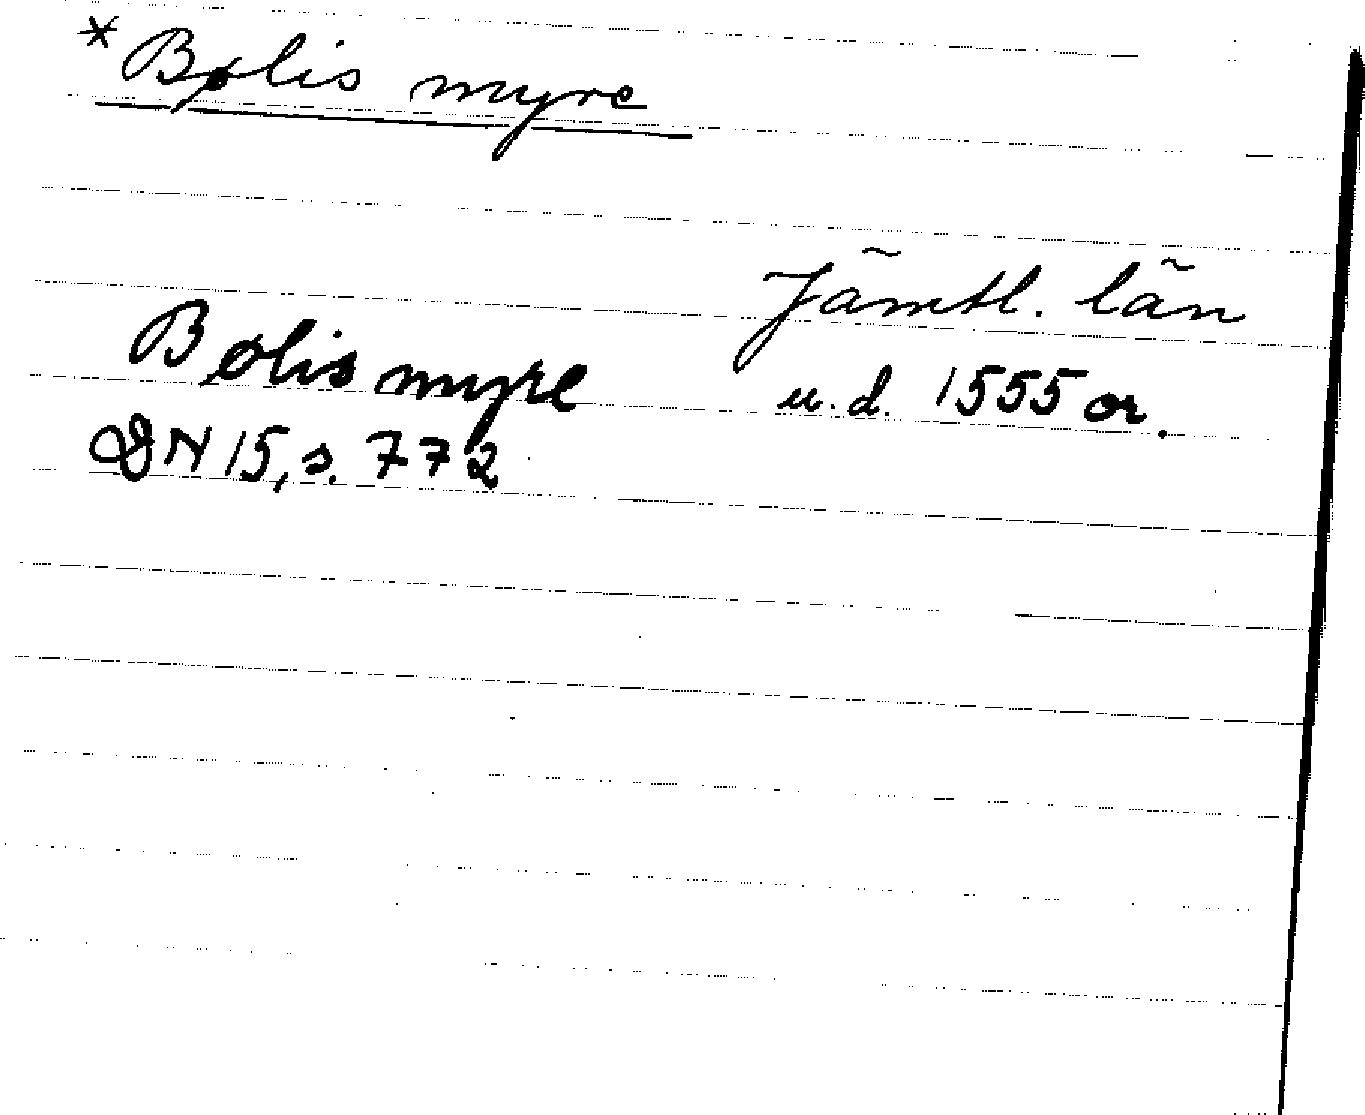 *Bølis myre
Jämtl. län
Bølis myre u.d. 1555 or.
DN 15, s. 772